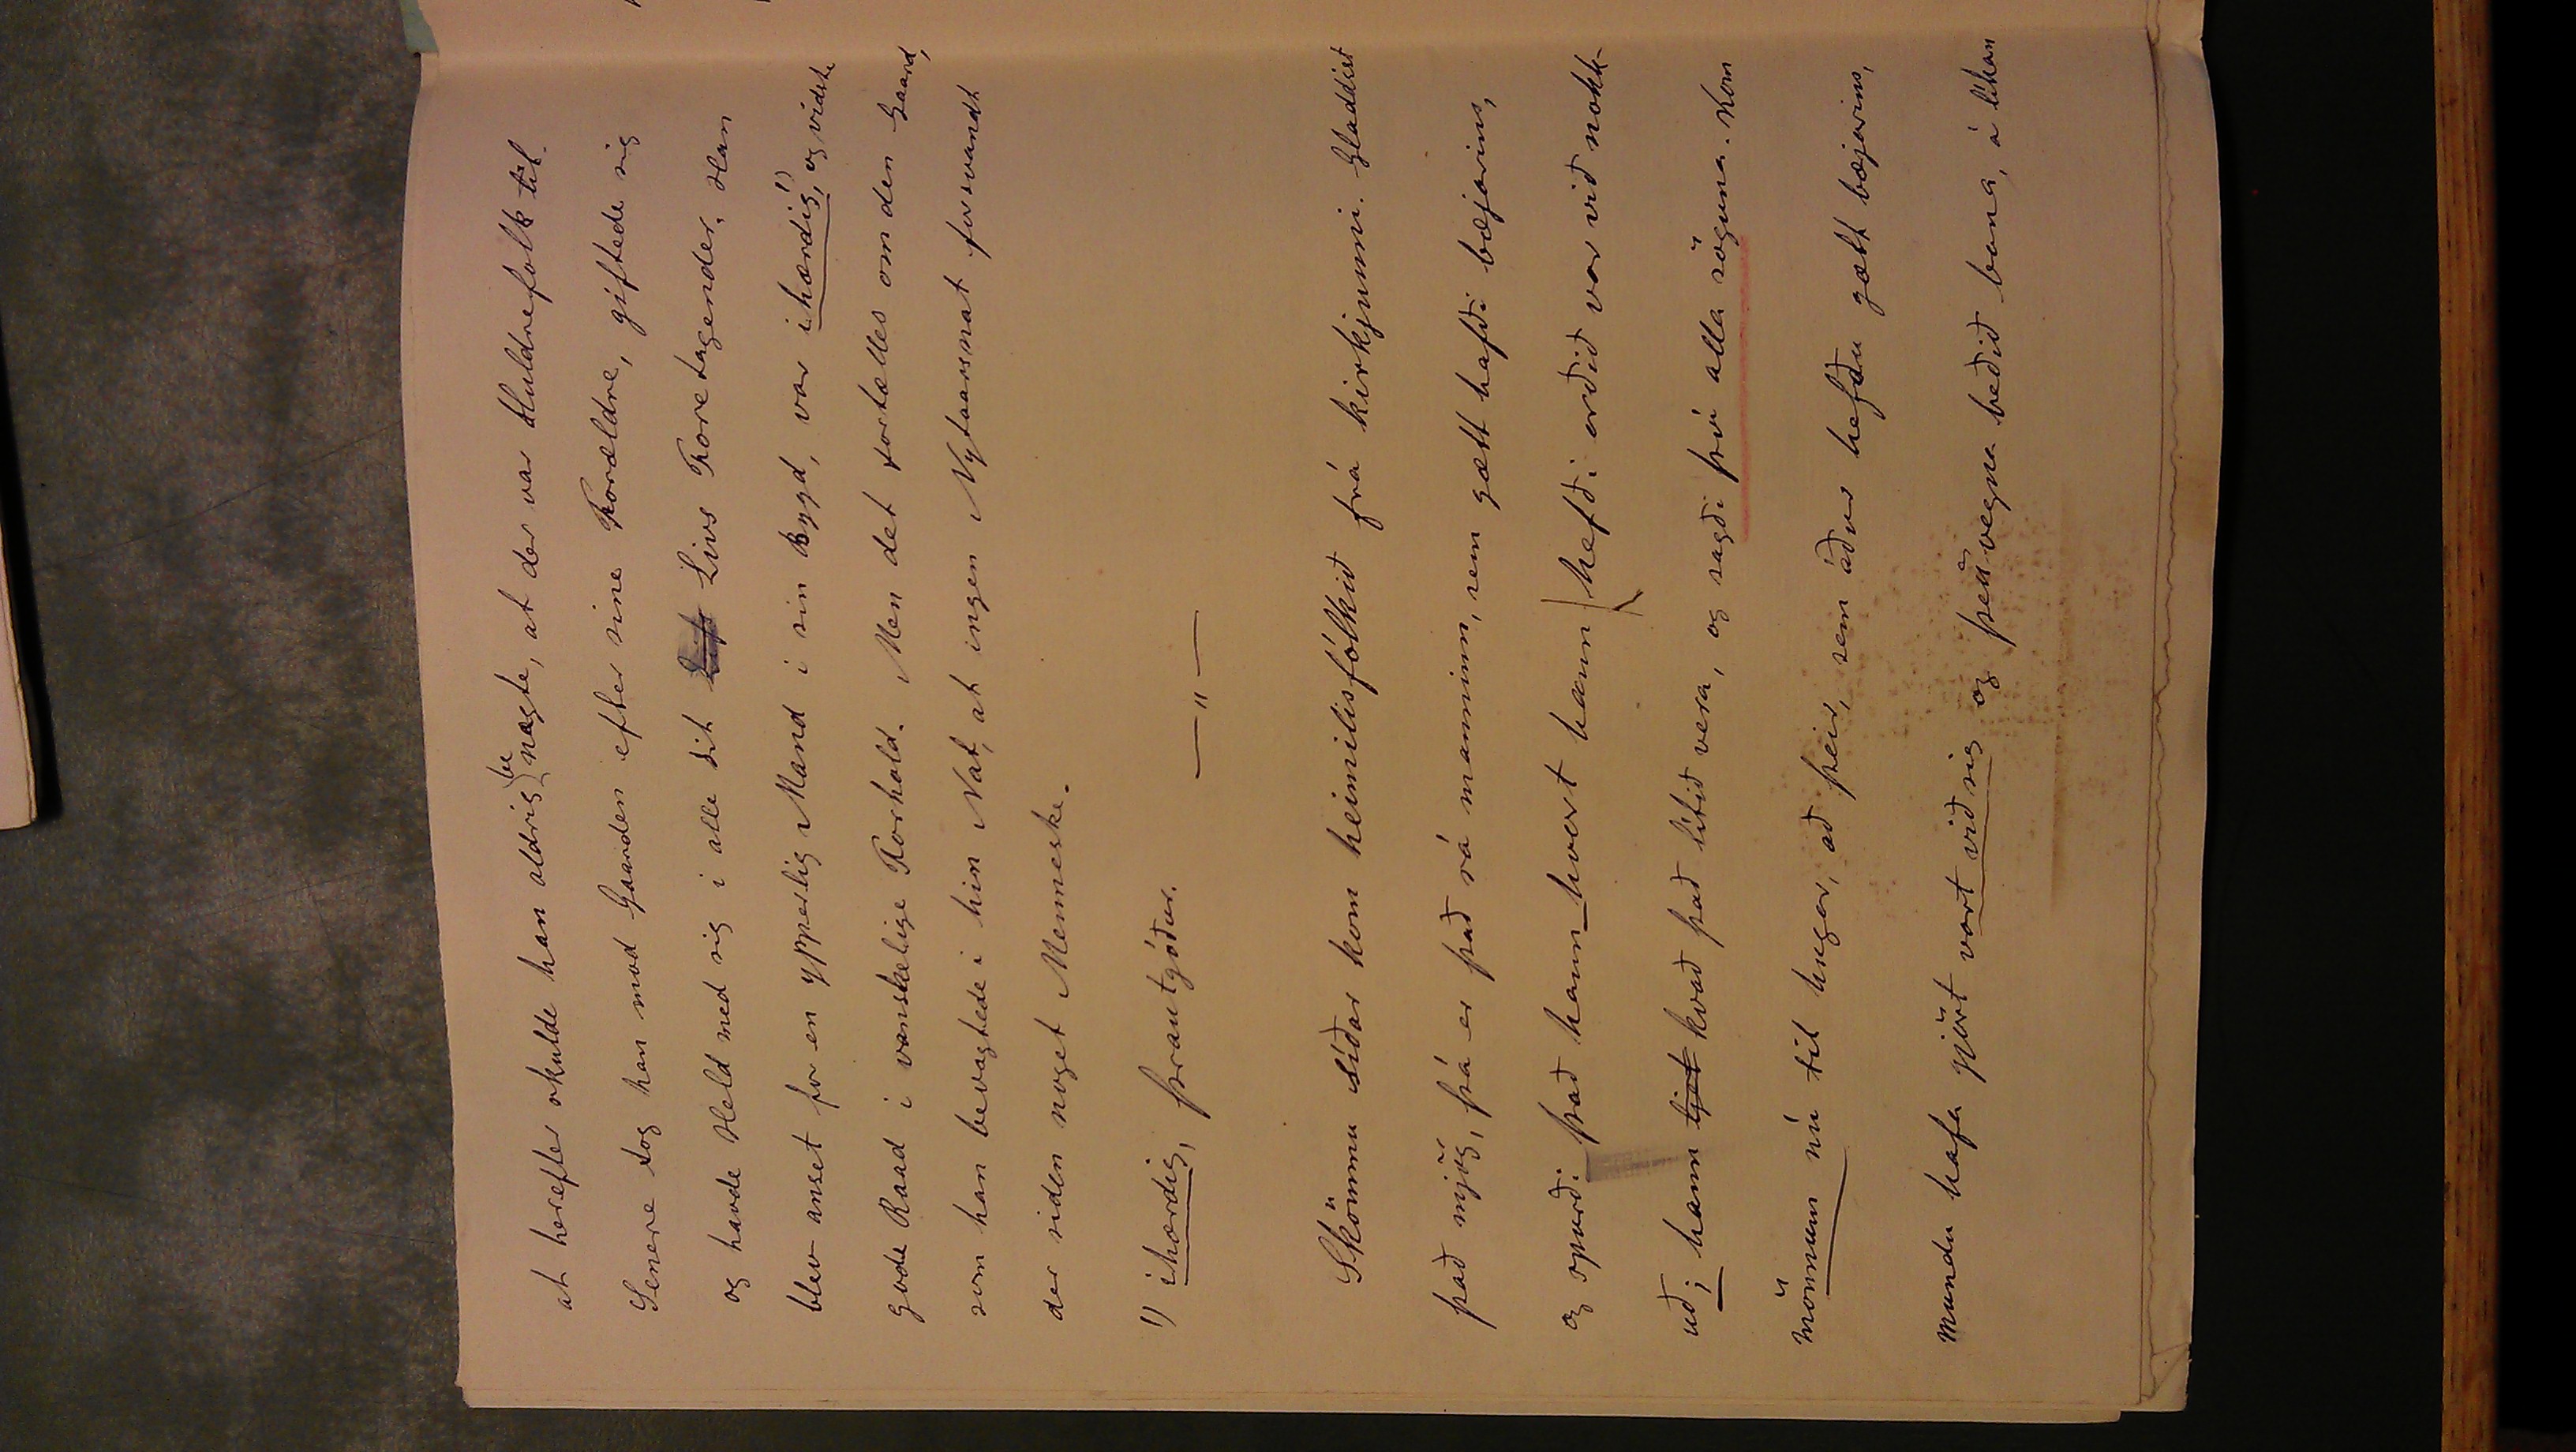 at herefter skulde han aldrig benægte, at der var Huldrefolk til.
Senere tog han mod Gaarden efter sine Forældre, giftede sig
og havde Held med sig i alle sit Livs Foretagender. Han
blev anset for en ypperlig Mand i sin Bygd, var ihærdig,1) og vidste
gode Raad i vanskelige Forhold. Men det fortælles om den Gaard,
som han bevogtede i hin Nat, at ingen Nytaarsnat forsvandt
der siden noget Menneske.
1) ihærdig, þrautgóður.
— " —
Skömmu síðar kom heimilisfólkið frá kirkjunni. Gladdist
það mjög, þá er það sá manninn, sem gætt hafði bæjarins,
og spurði það hann hvort hann hefði orðið var við nokk-
uð; hann kvað það lítið vera, og sagði því alla söguna. Kom
mönnum nú til hugar, að þeir, sem áður hefðu gætt bæjarins,
mundu hafa gjört vart við sig og þess vegna beðið bana, á líkan